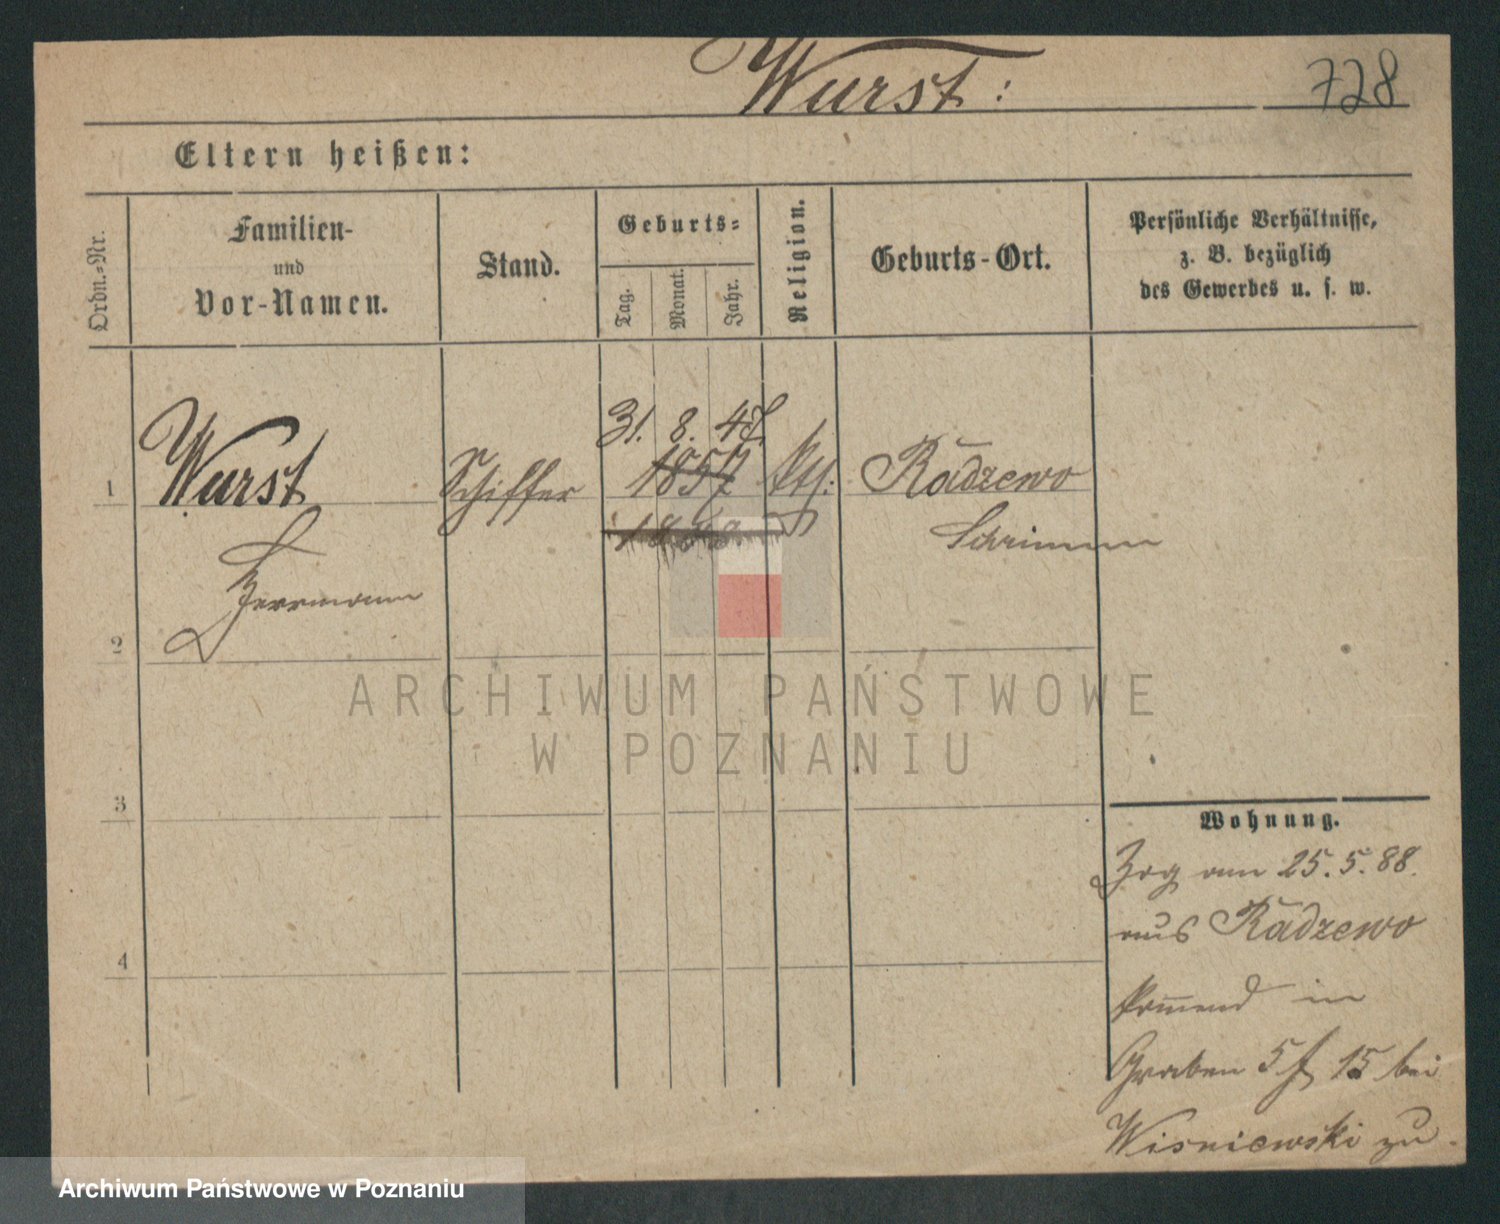 Wurst:
728
Eltern heißen:
Ordn.-Nr.
Familien-
und
Vor-Namen.
Stand.
Geburts-
Tag.
Monat.
Jahr.
Religion.
Geburts-Ort.
Persönliche Verhältnisse,
z. B. bezüglich
des Gewerbes u. s. w.
31. 8. 47.
1 Wurst Schiffer 1857 Radzewo
Schrimm
Herrmann
2
3
4
Wohnung.
Zog am 25.5.88.
aus Radzewo
kommend in
Graben 5 f 15 bei
Wisniewski zu.
ARCHIWUM PAŃSTWOWE
W POZNANIU
Archiwum Państwowe w Poznaniu